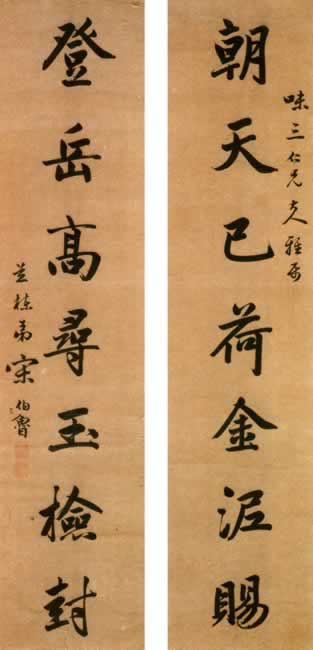 味三仁兄大人雅
朝天已荷金泥賜
登岳高尋玉檢封
芝棟弟宋伯魯